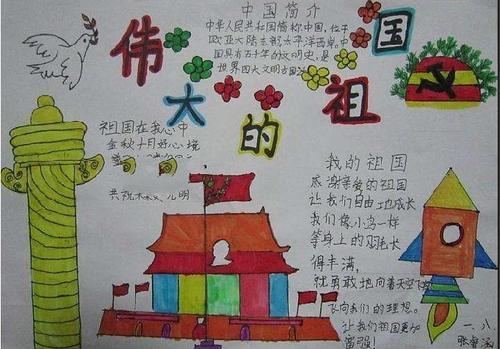 中国简介
中华人民共和国简称中国，位于
欧亚大陆东部太平洋西岸。中
国具有五千年的文明史，是
世界四大文明古国
伟大的祖国
祖国在我心中
金秋十月好心境
我的祖国
感谢亲爱的祖国
让我们自由地成长
我们像小鸟一样
等身上的羽毛长
得丰满，
就勇敢地向着天空飞
飞向我们的理想。
让我们祖国更加
富强！
一、八